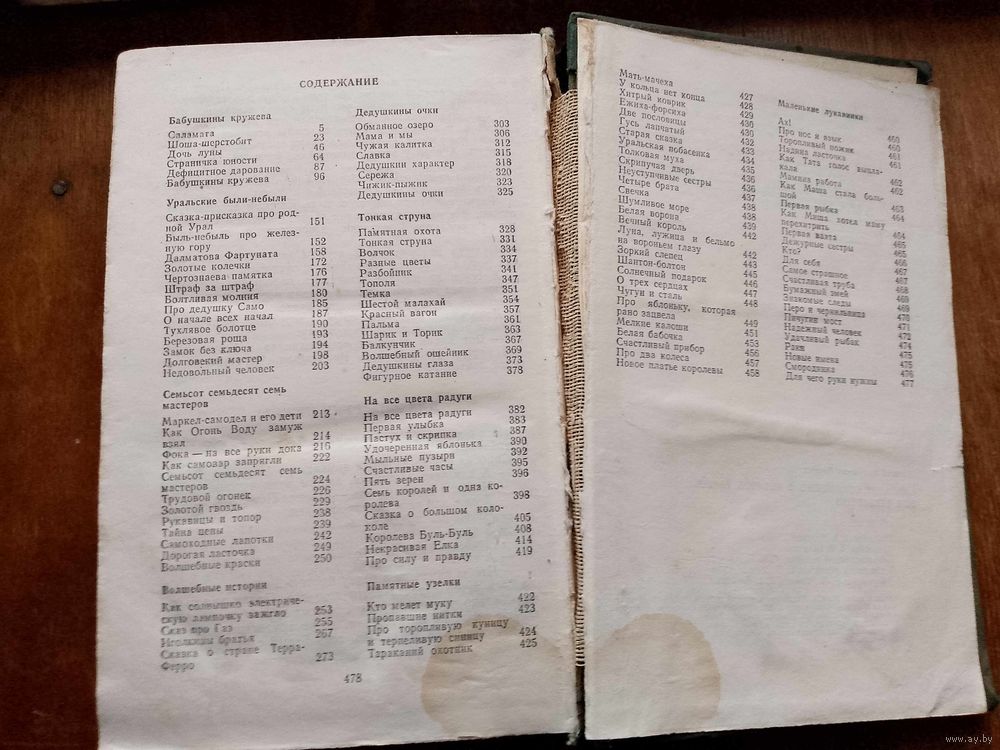 СОДЕРЖАНИЕ
Бабушкины кружева
Саламата 5
Шоша-шерстобит 23
Дочь луны 46
Страничка юности 64
Дефицитное дарование 87
Бабушкины кружева 96
Уральские были-небыли
Сказка-присказка про род-
ной Урал 151
Быль-небыль про желез-
ную гору 152
Далматова Фартуната 158
Золотые колечки 172
Чертознаева памятка 176
Штраф за штраф 177
Болтливая молния 180
Про дедушку Само 185
О начале всех начал 187
Тухлявое болотце 190
Березовая роща 193
Замок без ключа 194
Долговский мастер 198
Недовольный человек 203
Семьсот семьдесят семь
мастеров
Маркел-самодел и его дети 213
Как Огонь Воду замуж
взял 214
Фока — на все руки дока 216
Как самовар запрягли 222
Семьсот семьдесят семь
мастеров 224
Трудовой огонек 226
Золотой гвоздь 229
Рукавицы и топор 238
Тайна цены 239
Самоходные лапотки 242
Дорогая ласточка 249
Волшебные краски 250
Волшебные истории
Как солнышко электриче-
скую лампочку зажгло 253
Сказ про Газ 255
Иголкины братья 267
Сказка о стране Терра-
Ферро 273
Дедушкины очки
Обманное озеро 303
Мама и мы 306
Чужая калитка 312
Славка 315
Дедушкин характер 318
Сережа 320
Чижик-пыжик 323
Дедушкины очки 325
Тонкая струна
Памятная охота 328
Тонкая струна 331
Волчок 334
Разные цветы 337
Разбойник 341
Тополя 347
Темка 351
Шестой малахай 354
Красный вагон 357
Пальма 361
Шарик и Торик 363
Балкунчик 367
Волшебный ошейник 369
Дедушкины глаза 373
Фигурное катание 378
На все цвета радуги
На все цвета радуги 382
Первая улыбка 383
Пастух и скрипка 387
Удочеренная яблонька 390
Мыльные пузыри 392
Счастливые часы 395
Пять зерен 396
Семь королей и одна ко-
ролева 398
Сказка о большом коло-
коле 405
Королева Буль-Буль 408
Некрасивая Елка 414
Про силу и правду 419
Памятные узелки
Кто мелет муку 422
Пропавшие нитки 423
Про торопливую куницу
и терпеливую синицу 424
Тараканий охотник 425
478
Мать-мачеха 427
У кольца нет конца 428
Хитрый коврик 429
Ежиха-форсиха 430
Две пословицы 430
Гусь лапчатый 432
Старая сказка 433
Уральская побасенка 434
Толковая муха 435
Скрипучая дверь 436
Неуступчивые сестры 436
Четыре брата 437
Свечка 438
Шумливое море 438
Белая ворона 439
Вечный король 442
Луна, лужица и бельмо
на вороньем глазу 442
Зоркий слепец 443
Шантон-болтон 445
Солнечный подарок 446
О трех сердцах 447
Чугун и сталь 448
Про яблоньку, которая
рано зацвела 449
Мелкие калоши 451
Белая бабочка 453
Счастливый прибор 456
Про два колеса 457
Новое платье королевы 458
Маленькие лукавинки
Ах! 460
Про нос и язык 460
Торопливый ножик 461
Надина ласточка 461
Как Тата голос выпла-
кала 462
Мамина работа 462
Как Маша стала боль-
шой 463
Первая рыбка 464
Как Миша хотел маму
перехитрить 464
Первая вахта 465
Дежурные сестры 465
Кто? 466
Для себя 467
Самое страшное 467
Счастливая труба 468
Бумажный змей 469
Знакомые следы 469
Перо и чернильница 470
Пичугин мост 471
Надежный человек 472
Удачливый рыбак 474
Раки 475
Новые имена 475
Смородинка 476
Для чего руки нужны 477
www.ay.by